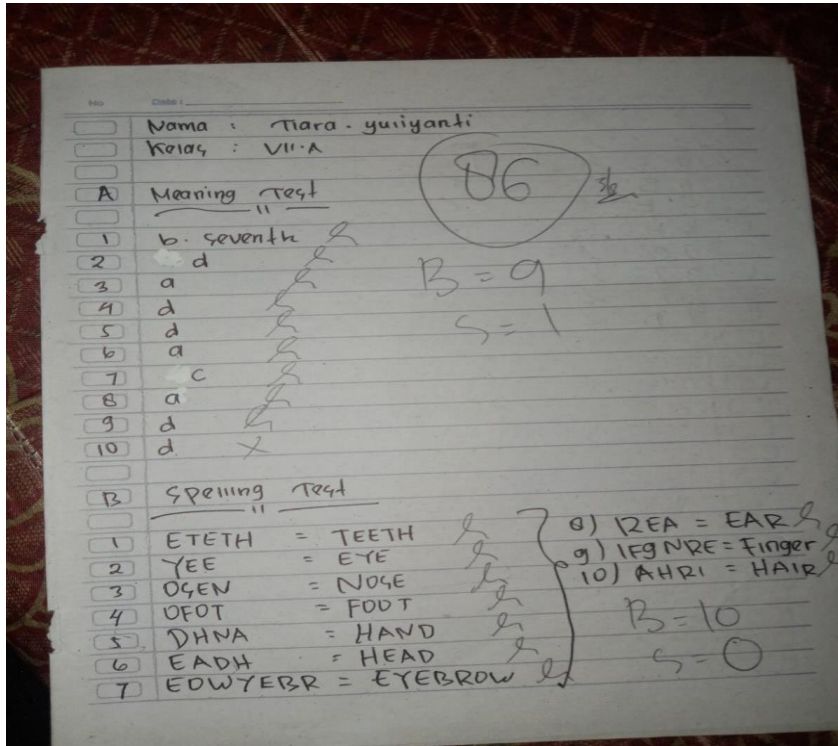 No Date :
Nama : Tiara . yuliyanti
Kelas : VII.A
86
A Meaning Test
1 b. seventh
2 d
3 a
4 d
5 d
6 a
7 c
8 a
9 d
10 d
B = 9
S = 1
B Spelling Test
1 ETETH = TEETH
2 YEE = EYE
3 OSEN = NOSE
4 OFOT = FOOT
5 DHNA = HAND
6 EADH = HEAD
7 EOWYEBR = EYEBROW
8) REA = EAR
9) IFgNRE = Finger
10) AHRI = HAIR
B = 10
S = 0